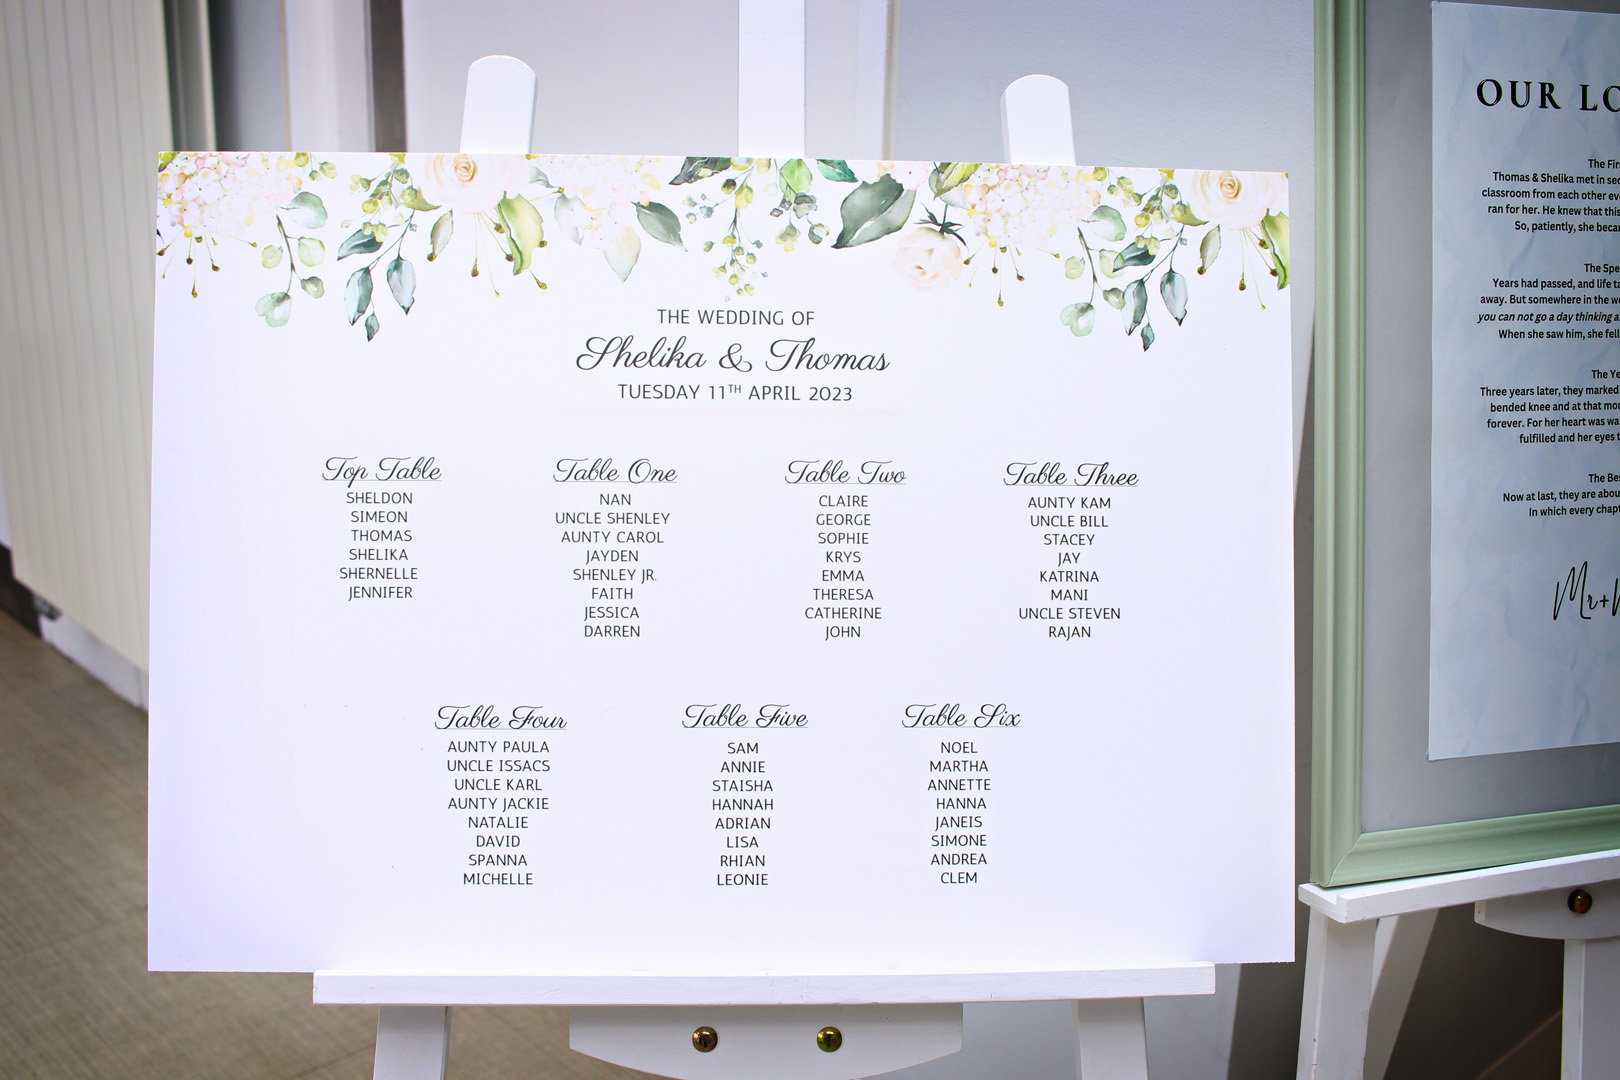 THE WEDDING OF
Shelika & Thomas
TUESDAY 11TH APRIL 2023
Top Table
SHELDON
SIMEON
THOMAS
SHELIKA
SHERNELLE
JENNIFER
Table One
NAN
UNCLE SHENLEY
AUNTY CAROL
JAYDEN
SHENLEY JR.
FAITH
JESSICA
DARREN
Table Two
CLAIRE
GEORGE
SOPHIE
KRYS
EMMA
THERESA
CATHERINE
JOHN
Table Three
AUNTY KAM
UNCLE BILL
STACEY
JAY
KATRINA
MANI
UNCLE STEVEN
RAJAN
Table Four
AUNTY PAULA
UNCLE ISSACS
UNCLE KARL
AUNTY JACKIE
NATALIE
DAVID
SPANNA
MICHELLE
Table Five
SAM
ANNIE
STAISHA
HANNAH
ADRIAN
LISA
RHIAN
LEONIE
Table Six
NOEL
MARTHA
ANNETTE
HANNA
JANEIS
SIMONE
ANDREA
CLEM
OUR
The
Thomas & Shelika met in
classroom from each other
ran for her. He knew that this
So, patiently, she
The
Years had passed, and life
away. But somewhere in the
you can not go a day thinking
When she saw him, she fell
The
Three years later, they marked
bended knee and at that
forever. For her heart was
fulfilled and her eyes
The
Now at last, they are
In which every
Mr+